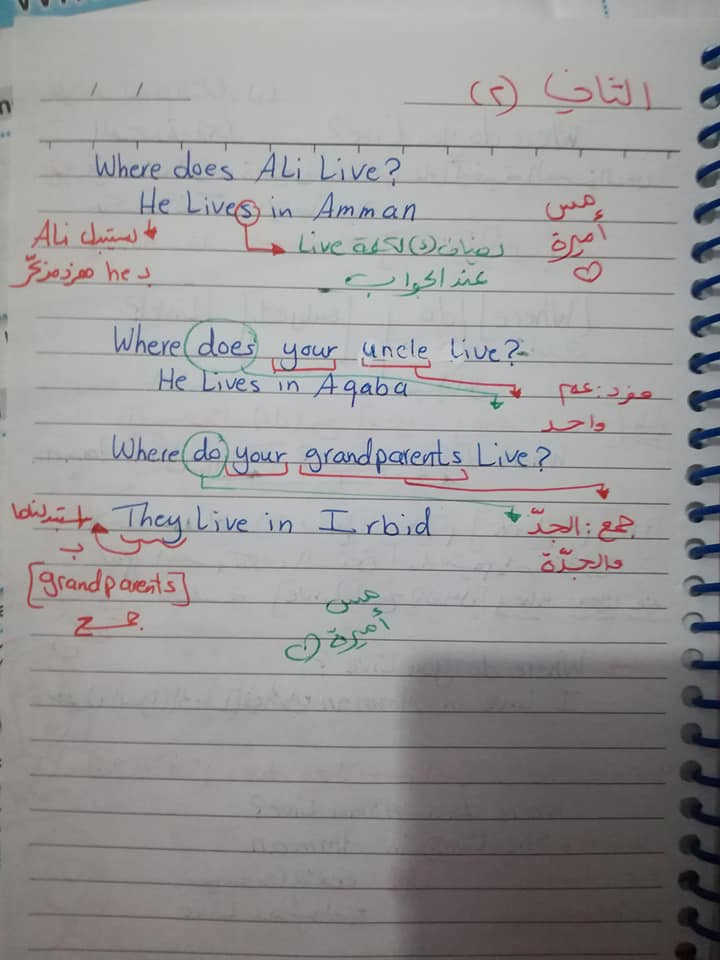 التاني (٢)
Where does Ali Live?
He Lives in Amman
مس
أميرة
نستبدل Ali
بـ he مفرد مذكّر
لكلمة Live
عند الجواب
Where does your uncle live?
He Lives in Aqaba
مفرد: عم
واحد
Where do your grandparents Live?
They Live in Irbid
استبدلناها
بـ
جمع: الجدّ
والجدّة
[grandparents]
جمع
مس
أميرة